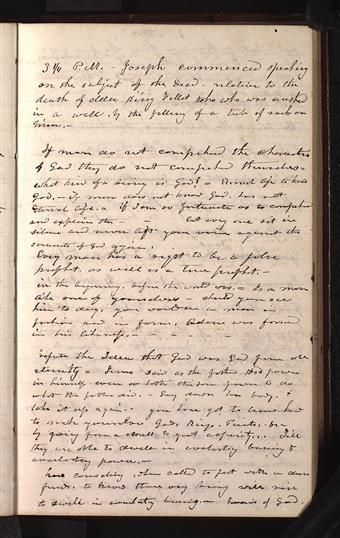 3 1/4 P.M. - Joseph commenced speaking
on the subject of the Dead - relative to the
death of elder King Follet who who was crushed
in a well. by the falling of a tub of rock on
him. -
If men do not comprehend the character
of God they do not comprehend themselves.
what kind of a being is God? - Eternal life to know
God. - if man does not know God. has not
Eternal life. - if I am so fortunate as to comprehend
and explain the let every one sit in
silence and never lift your voice against the
servants of God again.
Every man has a right to be a false
prophet. as well as a true prophet. -
in the beginning, before the world was. - Is a man
like one of yourselves - should you see
him to day. you would see a man in
fashion and in form. Adam was formed
in his likeness. -
Refute the Idea that God was God from all
eternity - Jesus said as the father had power
in himself even so hath the son power to do
what the father did. - Lay down his body. &
take it up again. - you have got to learn how
to make yourselves Gods, Kings, Priests, &c -
by going from a small to great capacity. Till
they are able to dwell in everlasting burning &
everlasting power. -
how consoling, when called to part with a dear
friend. to know their very being will rise
to dwell in everlasting burning. - heirs of God.